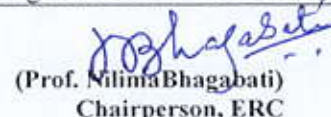 Bhagabati
(Prof. NilimaBhagabati)
Chairperson, ERC